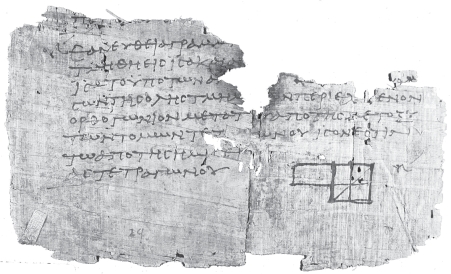 ΕΑΝ ΕΥΘΕΙΑ ΓΡΑΜΜ
ΤΜΗΘΗ ΕΙϹ ΙϹΑ Κ
ΙϹΑ ΤΟ ΥΠΟ ΤΩΝ ΑΝ
ΤΩΝ ΤΗϹ ΟΛΗϹ ΤΜΗΜ ΩΝ ΠΕΡΙΕΧ ΜΕΝΟΝ
ΟΡΘΟΓΩΝΙΟΝ ΜΕΤΑ ΤΟΥ ΑΠΟ ΤΗϹ ΜΕΤΟΞΥ
ΤΩΝ ΤΟΜΩΝ ΤΕΤ ΩΝΟΥ ΙϹΟΝ ΕϹΤΙΝ
ΤΩ ΑΠΟ ΤΗϹ ΗΜΙ
ΤΕΤΡΑΓΩΝΟΥ
29